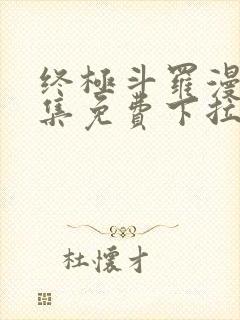 终極斗羅漫
集免費下拉
杜懷才